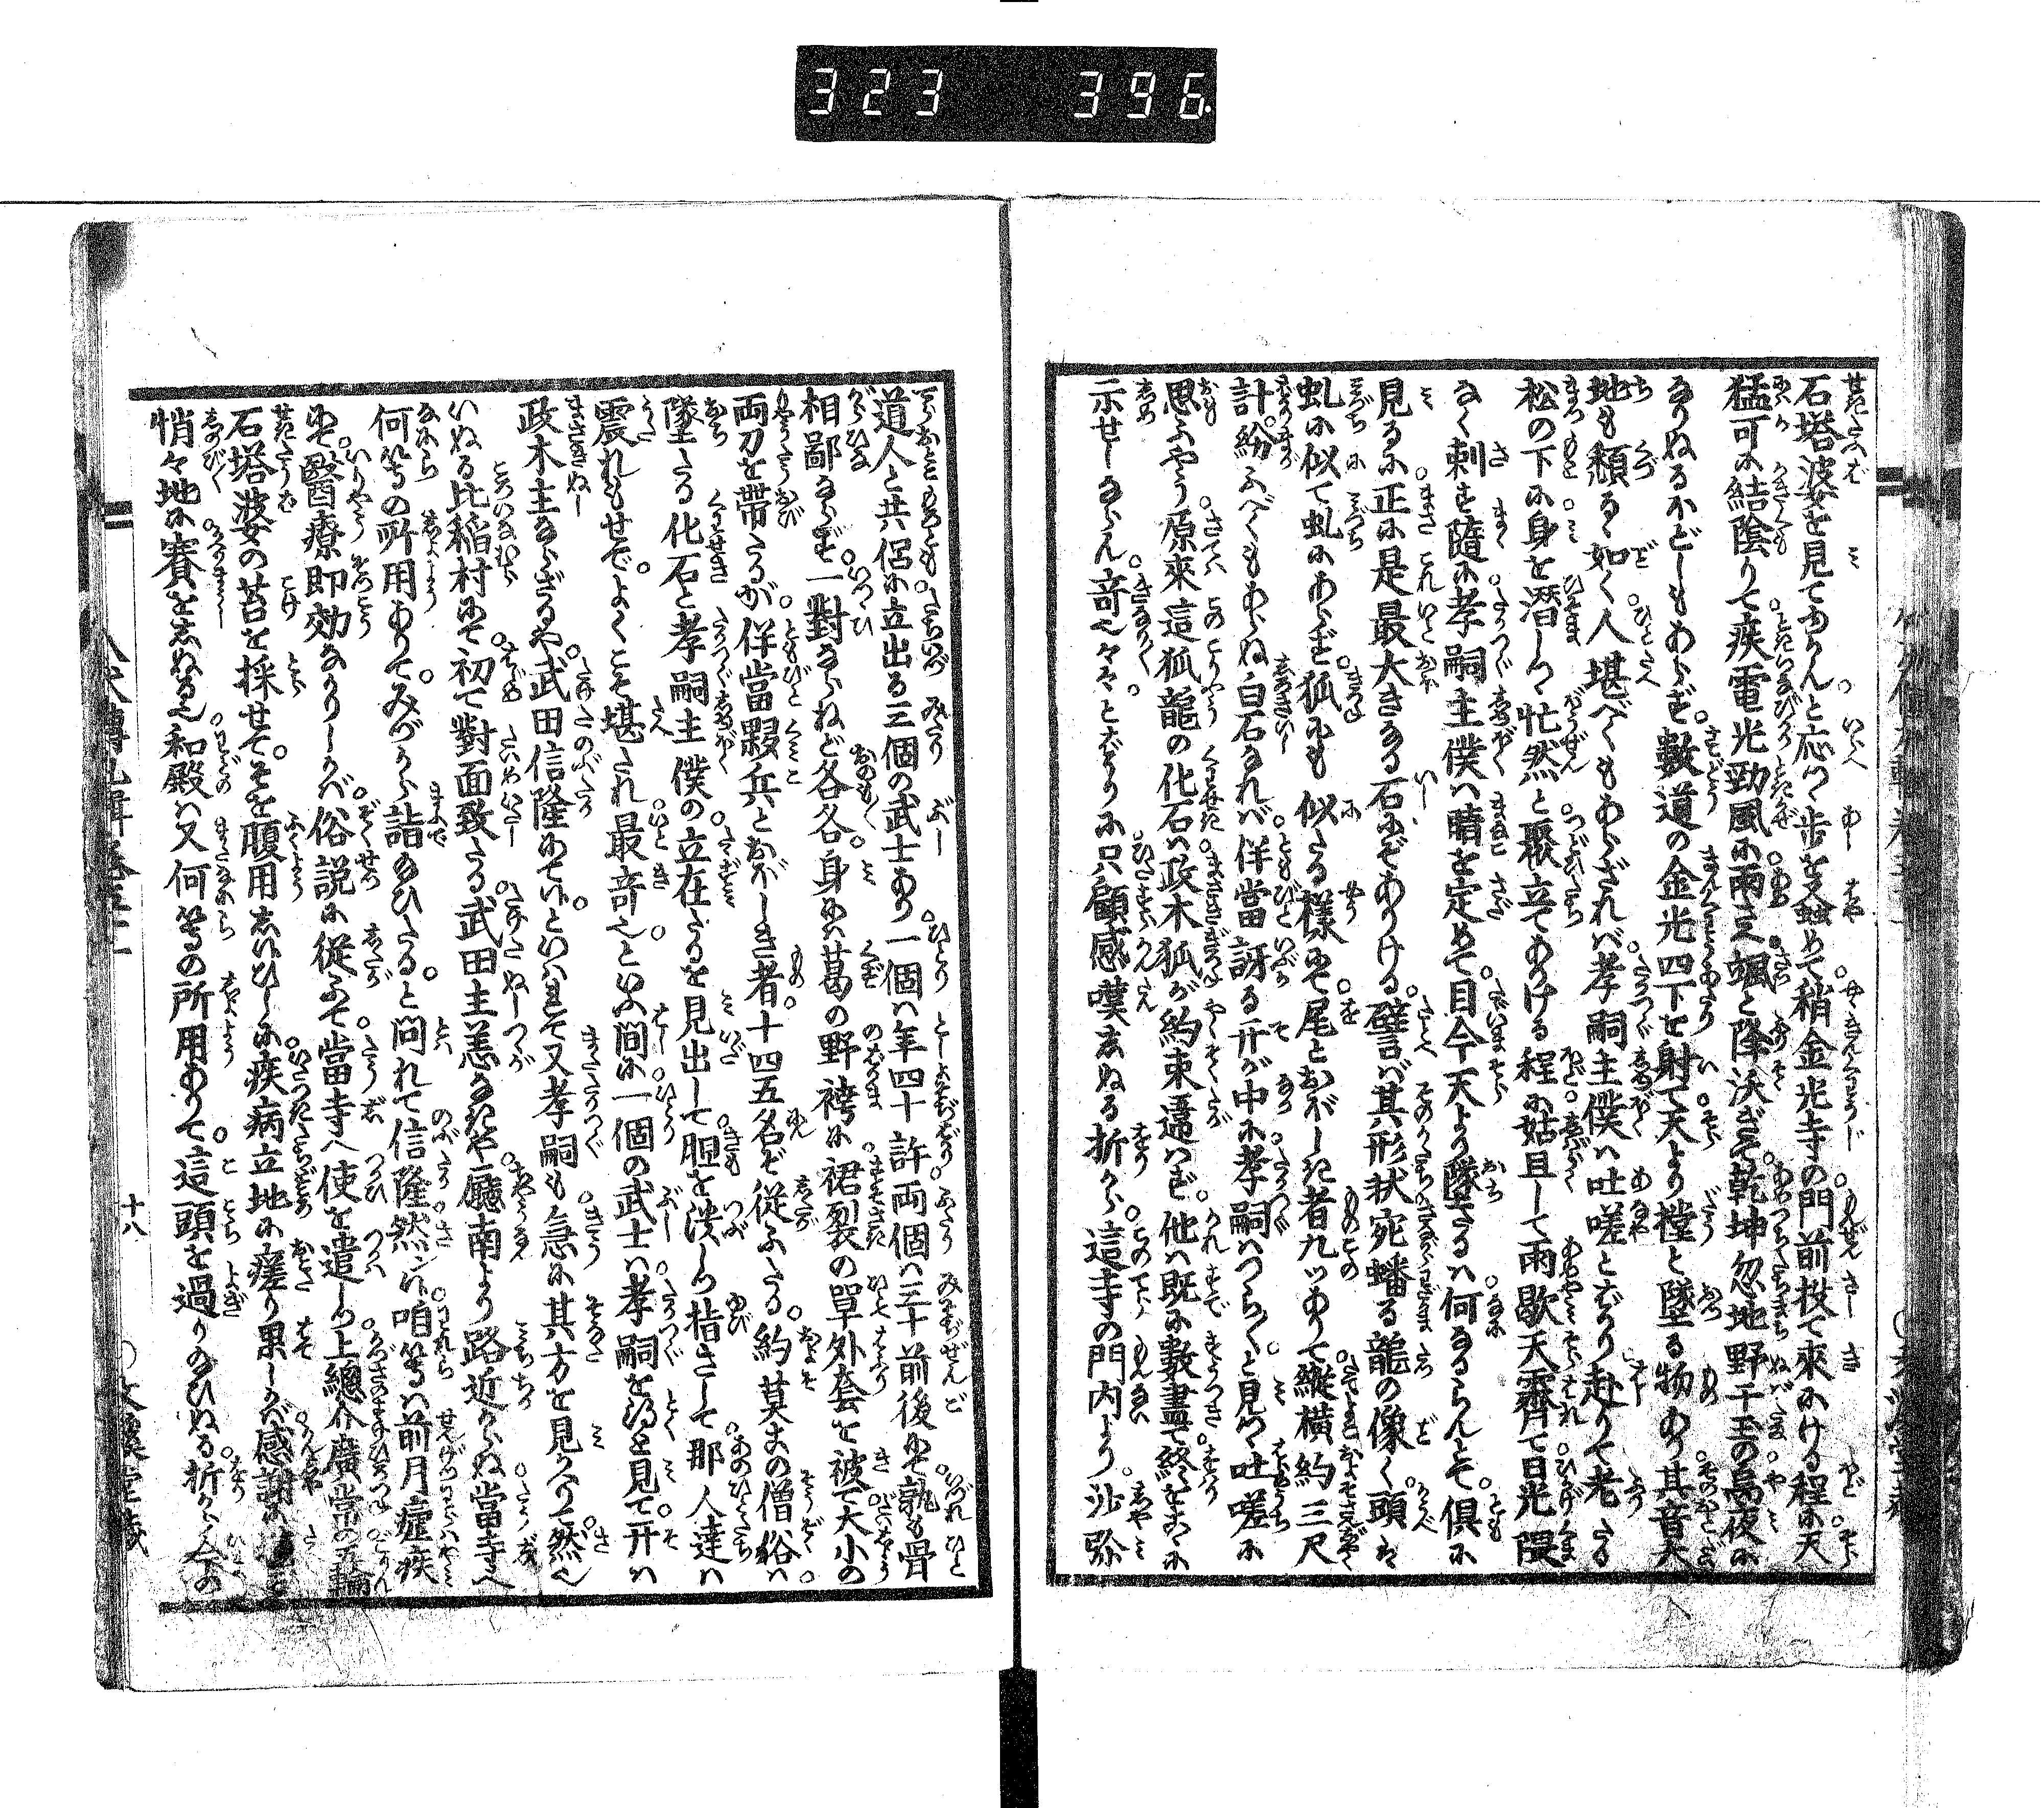 323 396
石塔波女を見てゆかんと応つゝ歩を蝨めて稍金光寺の門前投て來にける程に天
猛可に結陰りて疾電光勁風に雨さへ颯と降沃ぎて乾坤忽地野干玉の烏夜に
なりぬるかどしもあらず數道の金光四下を射て天より撞と墜る物あり其音大
地も頽るゝ如く人堪べくもあらざれば孝嗣主僕は吐嗟とばかり赴りて老たる
松の下に身を潜しつゝ忙然と聚立てありける程に姑且して雨歇天霽て日光隈
なく刺を隨に孝嗣主僕は睛を定めて目今天より墜たるは何なるらんとて倶に
見るに正に是最大きなる石にぞありける譬ば其形状宛蟠る龍の像く頭は
虬に似て虬にあらず狐にも似たる樣にて尾とおぼしき者九ッありて縱横約三尺
計紛ふべくもあらぬ白石なれば伴當訝る开が中に孝嗣はつら〳〵と見つゝ吐嗟に
思ふやう原來這狐龍の化石は政木狐が約束違はず他は既に數盡て終をこゝに
示せしならん竒也々々とばかりに只顧感嘆しぬる折から這寺の門内より沙弥
道人と共侶に立出る三個の武士あり一個は年四十許両個は三十前後にて孰も骨
相鄙ならず一對ならねど各各身には葛の野袴に裙裂の單外套を被て大小の
両刀を帶たるが伴當夥兵とおぼしき者十四五名ぞ從ふたる約莫この僧俗は
墜たる化石と孝嗣主僕の立在たるを見出して胆を潰しつ指さして那人達は
震れもせでよくこそ堪たれ最竒也といふ間に一個の武士は孝嗣を得と見て开は
政木主ならざるや武田信隆にていといはれて又孝嗣も急に其方を見かへりて然也
いぬる比稲村にて初て對面致たる武田主恙なきや廳南より路近からぬ當寺へ
何等の所用ありてみづから詣なひたると問れて信隆然ン候咱等は前月瘧疾
にて醫療即効なかりしかば俗説に從ふて當寺へ使を遣しつ上總介廣常の五輪
石塔婆女の苔を採せてそを腹用しいひしに疾病立地に瘥り果しかば感謝に
悄々地に賽をしぬる也和殿は又何等の所用ありて這頭を過りなひぬる折から今の
十八